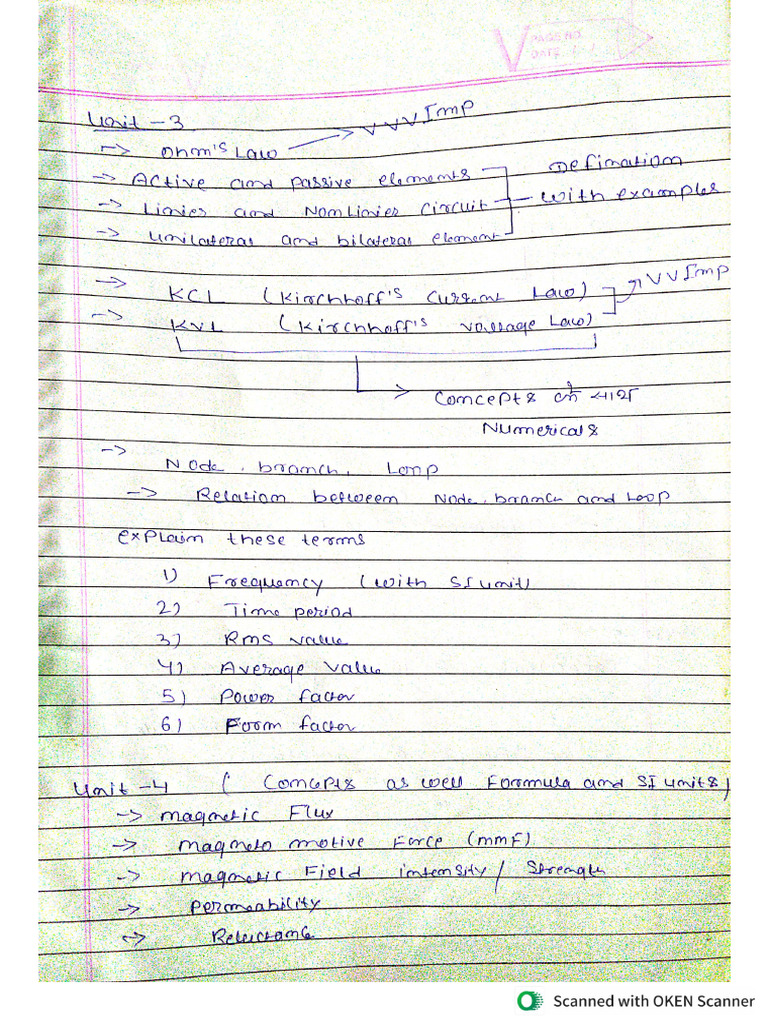 PAGE NO.
DATE / /
Unit - 3
-> Ohm's Law -> VVV Imp
-> Active and Passive elements
-> Linier and Nonlinier Circuit
-> Unilateral and bilateral element
Defination
with examples
-> KCL (Kirchhoff's Current Law)
-> KVL (Kirchhoff's Voltage Law)
VV Imp
-> Concepts के साथ
Numericals
-> Node, branch, Loop
-> Relation between Node, branch and Loop
Explain these terms
1) Frequency (with SI unit)
2) Time period
3) Rms value
4) Average value
5) Power factor
6) Form factor
Unit - 4 (Concepts as well Formula and SI units)
-> magnetic Flux
-> magneto motive Force (mmF)
-> magnetic Field intensity / Strength
-> Permeability
-> Reluctance
Scanned with OKEN Scanner